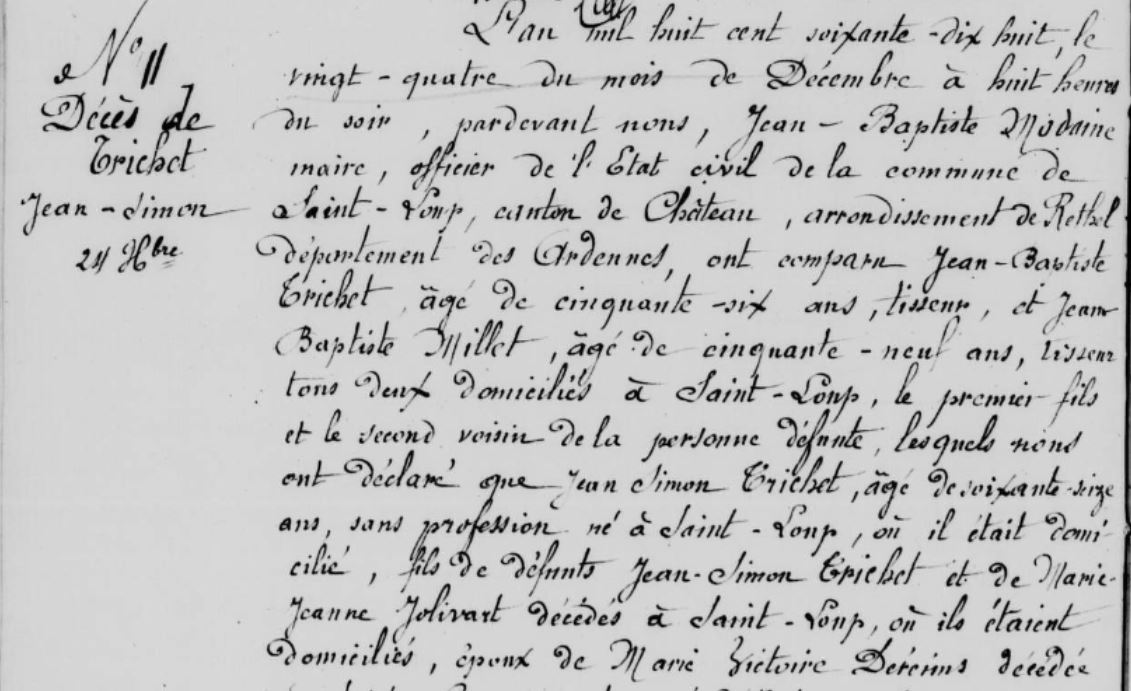 N° 11
Décès de
Trichet
Jean-Simon
24 Xbre
L'an mil huit cent soixante-dix huit, le
vingt-quatre du mois de Décembre à huit heures
du soir, pardevant nous, Jean-Baptiste Modaine
maire, officier de l'Etat civil de la commune de
Saint-Loup, canton de Château, arrondissement de Rethel
département des Ardennes, ont comparu Jean-Baptiste
Trichet, âgé de cinquante-six ans, tisseur, et Jean
Baptiste Millet, âgé de cinquante-neuf ans, tisseur
tous deux domiciliés à Saint-Loup, le premier fils
et le second voisin de la personne défunte, lesquels nous
ont déclaré que Jean Simon Trichet, âgé de soixante-seize
ans, sans profession né à Saint-Loup, où il était domi-
cilié, fils de défunts Jean-Simon Trichet et de Marie-
Jeanne Jolivart décédés à Saint-Loup, où ils étaient
domiciliés, époux de Marie Victoire décédée